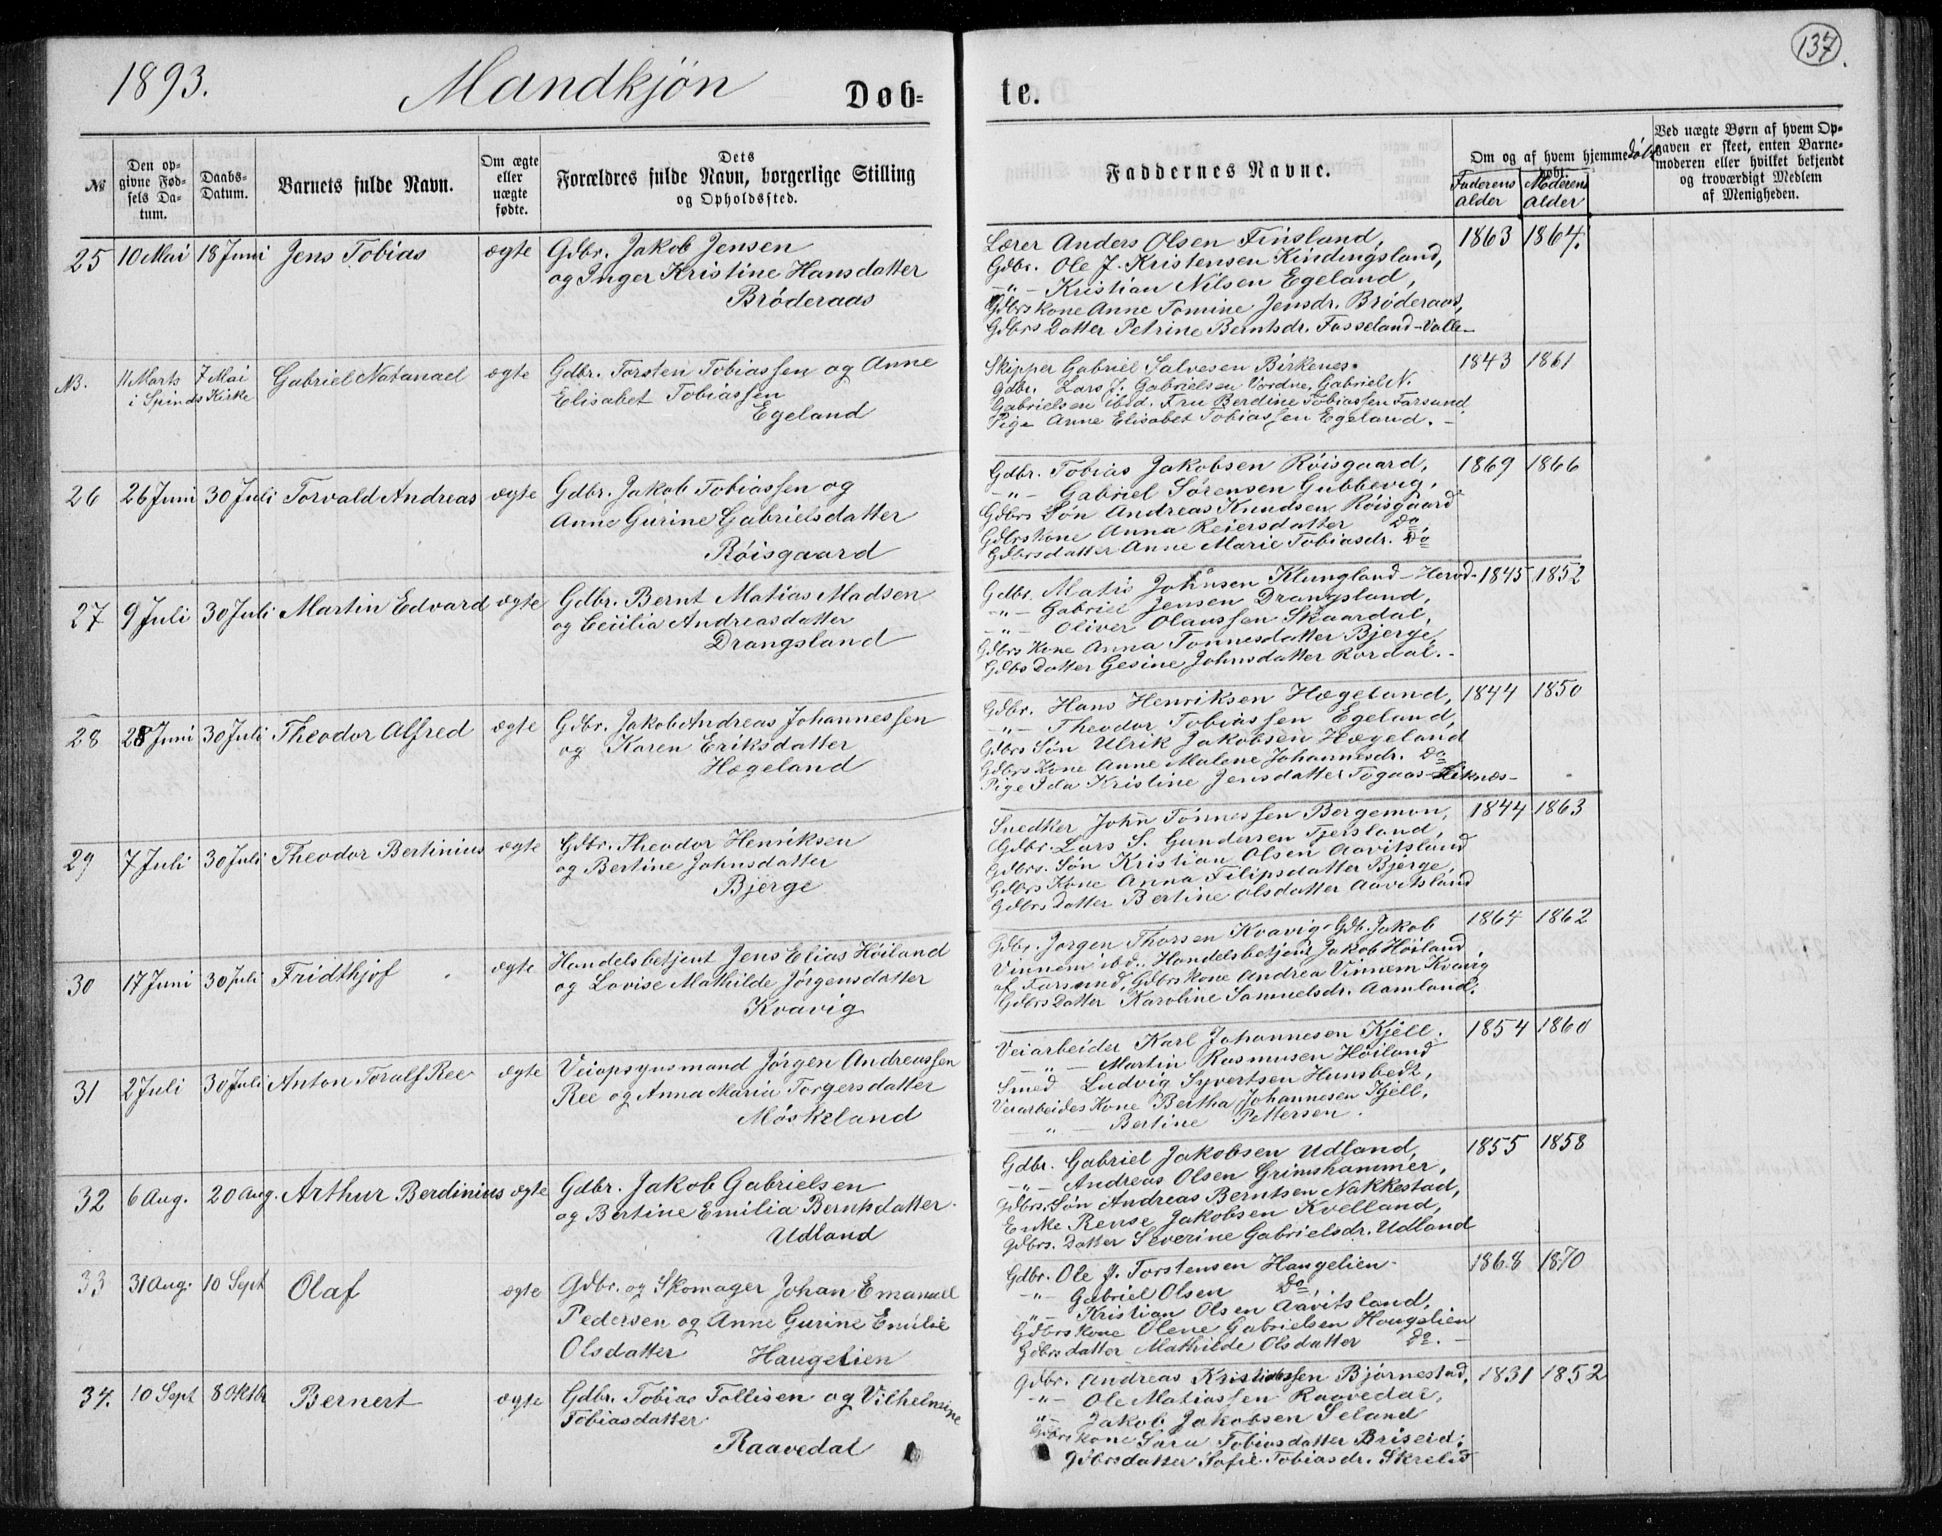 1893. Mandkjön Døb= te. 137.
№ Den op- givne Fød- sels Da- tum. Daabs- Datum. Barnets fulde Navn. Om ægte eller uægte fødte. Dets Forældres fulde Navn, borgerlige Stilling og Opholdssted.
Faddernes Navne. Om og af hvem hjemmedøbt. Faderens alder Moderens alder Ved uægte Børn af hvem Op- gaven er skeet, enten Barne- moderen eller hvilket bekjendt og troværdigt Medlem af Menigheden.
25 10 Mai 18 Juni Jens Tobias ægte Gdbr. Jakob Jensen
og Inger Kristine Hansdatter
Bröderaas
Lærer Anders Olsen Finsland, 1863 1864.
Gdbr. Ole J. Kristensen Kindingsland,
-"- Kristian Nilsen Egeland,
Gdbrs kone Anne Tomine Jensdr. Bröderaas,
Gdbrs Datter Petrine Berntsdr. Fosseland-Valle-
NB. 11 Marts 7 Mai Gabriel Natanael ægte Gdbr. Torsten Tobiassen og Anne
i Spinds Kirke
Elisabet Tobiassen
Egeland
Skipper Gabriel Salvesen Birkenes. 1843 1861
Gdbr. Lars J. Gabrielsen Vordne, Gabriel N.
Gabrielsen ibid. Fru Berdine Tobiassen Farsund,
Pige Anne Elisabet Tobiassen Egeland.-
26 26 Juni 30 Juli Torvald Andreas ægte Gdbr. Jakob Tobiassen og
Anne Gurine Gabrielsdatter
Röisgaard
Gdbr. Tobias Jakobsen Röisgaard, 1869 1866
-"- Gabriel Sörensen Gubbevig,
Gdbrs Sön Andreas Knudsen Röisgaard
Gdbrs kone Anna Reiersdatter Do,
Gdbrsdatter Anne Marie Tobiasdr. Do
27 9 Juli 30 Juli Martin Edvard ægte Gdbr. Bernt Matias Madsen
og Cecilia Andreasdatter
Drangsland
Gdbr. Matis Johnsen Klungland-Herad- 1845 1852
-"- Gabriel Jensen Drangsland,
-"- Oliver Olaussen Skaardal,
Gdbrs Kone Anna Tönnesdatter Bjerge,
Gdbs Datter Gesine Johnsdatter Rördal.-
28 28 Juni 30 Juli Theodor Alfred ægte Gdbr. Jakob Andreas Johannessen
og Karen Eriksdatter
Hægeland
Gdbr. Hans Henriksen Hægeland, 1844 1850
-"- Theodor Tobiassen Egeland,
Gdbrs Sön Ulrik Jakobsen Hægeland
Gdbrs Kone Anne Malene Johannesdr. Do
Pige Ida Kristine Jensdatter Togaas-Liknæs-
29 7 Juli 30 Juli Theodor Bertinius ægte Gdbr. Theodor Henriksen
og Bertine Johnsdatter
Bjerge
Snedker John Tönnessen Bergemon, 1844 1863
Gdbr. Lars S. Gundersen Tjersland,
Gdbrs. Sön Kristian Olsen Aavitsland
Gdbrs Kone Anna Filipsdatter Bjerge,
Gdbrs Datter Bertine Olsdatter Aavitsland
30 17 Juni 30 Juli Fridthjof ægte Handelsbetjent Jens Elias Höiland
og Lovise Mathilde Jörgensdatter
Kvavig
Gdbr. Jörgen Thorsen Kvavig Gdb. Jakob 1864 1862
Vinnem ibd.. Handelsbetjent Jakob Höiland
af Farsund, Gdbrs kone Andrea Vinnem Kvavig
Gdbrs Datter Karoline Samuelsdr. Aamland.
31 2 Juli 30 Juli Anton Toralf Ree ægte Veiopsynsmand Jörgen Andreassen
Ree og Anna Maria Torgersdatter
Möskeland
Veiarbeider Karl Johannesen Kjell. 1854 1860
-"- Martin Rasmusen Höiland
Smed Ludvig Syvertsen Hunsbedt,
Veiarbeides Kone Bertha Johannesen Kjell,
-"- Bertine Pettersen.
32 6 Aug. 20 Aug. Arthur Berdinius ægte Gdbr. Jakob Gabrielsen
og Bertine Emilia Berntsdatter.
Udland
Gdbr. Gabriel Jakobsen Udland, 1855 1858
-"- Andreas Olsen Grimshammer,
Gdbrs. Sön Andreas Berntsen Nakkestad,
Enke Rense Jakobsen Kvelland,
Gdbrs. Datter Severine Gabrielsdr. Udland
33 31 Aug. 10 Sept Olaf ægte Gdbr. og Skomager Johan Emanuel
Pedersen og Anne Gurine Emilie
Olsdatter Haugelien
Gdbr. Ole J. Torstensen Haugelien- 1868 1870
-"- Gabriel Olsen Do,
"- Kristian Olsen Aavitsland,
Gdbrs kone Olene Gabrielsen Haugelien
Gdbrsdatter Mathilde Olsdatter Do.-
34. 10 Sept 8 Oktbr Bernert ægte Gdbr. Tobias Tollisen og Vilhelmine
Tobiasdatter
Raavedal
Gdbr. Andreas Kristiansen Björnestad, 1831 1852
-"- Ole Matiassen Raavedal,
"- Jakob Jakobsen Seland
Gdbrs kone Sara Tobiasdatter Briseid;
Gdbrsdatter Sofie Tobiasdr. Skreliд